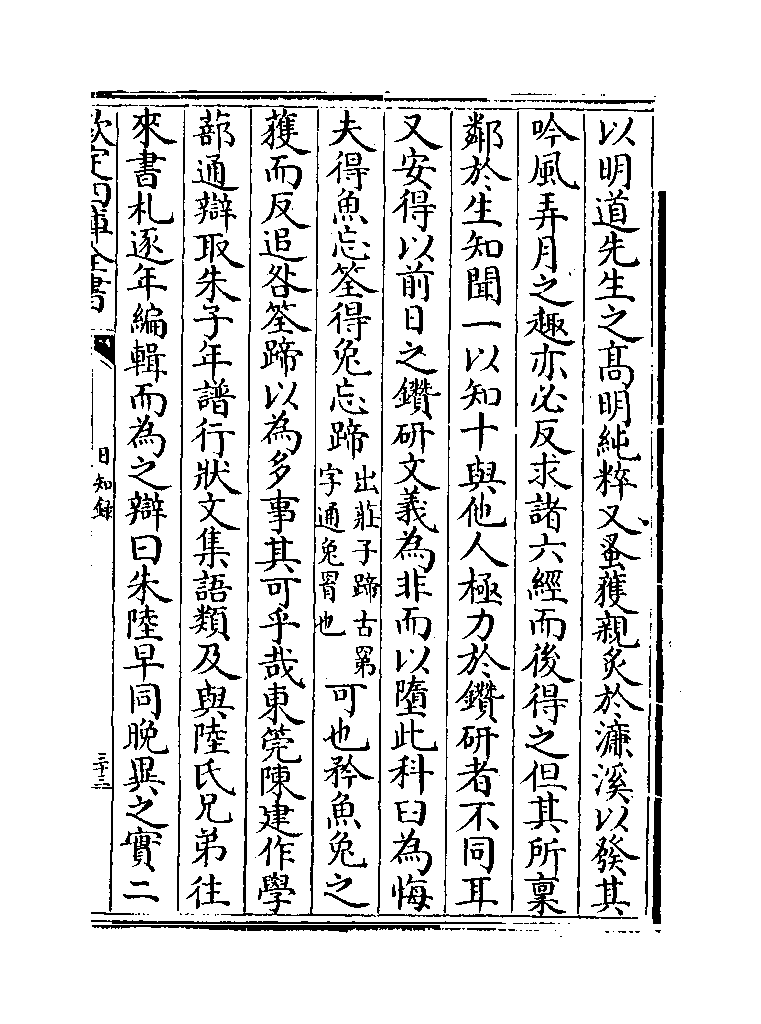 以明道先生之髙明純粹又蚤獲親炙於濂溪以發其
吟風弄月之趣亦必反求諸六經而後得之但其所稟
鄰於生知聞一以知十與他人極力於鑽研者不同耳
又安得以前日之鑽研文義為非而以墮此科臼為悔
夫得魚忘筌得兔忘蹄出莊子蹄古罤字通兔罥也可也矜魚兔之
獲而反追咎筌蹄以為多事其可乎哉東莞陳建作學
蔀通辯取朱子年譜行狀文集語類及與陸氏兄弟往
來書札逐年編輯而為之辯曰朱陸早同晚異之實二
欽定四庫全書
日知録
三十三